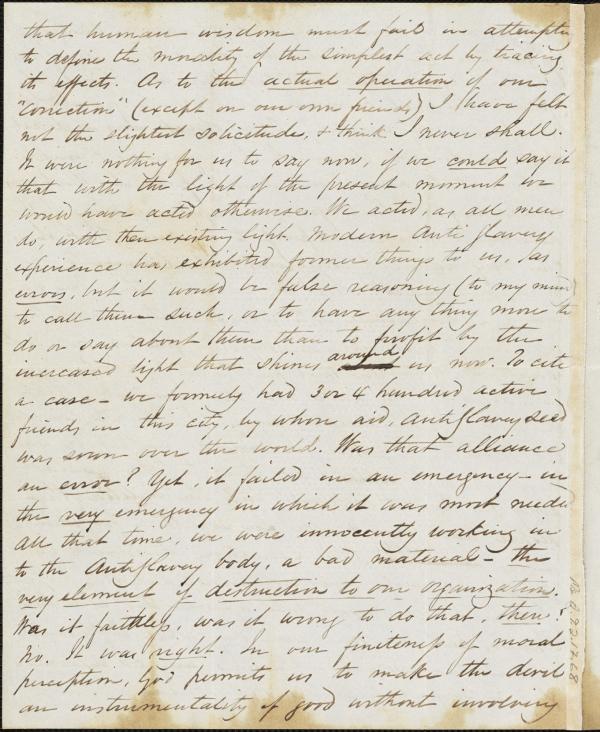 that human wisdom must fail in attempting
to define the morality of the simplest act by tracing
its effects. As to the actual operation of our
"correction" (except on our own friends) I have felt
not the slightest solicitude, & think I never shall.
It were nothing for us to say now, if we could say it
that with the light of the present moment we
would have acted otherwise. We acted, as all men
do, with then existing light. Modern Anti Slavery
experience has exhibited former things to us, as
errors, but it would be false reasoning (to my mind)
to call them such, or to have any thing more to
do or say about them than to profit by the
increased light that shines around us now. To cite
a case – we formerly had 3 or 4 hundred active
friends in this city, by whose aid, Anti Slavery seed
was sown over the world. Was that alliance
an error? Yet, it failed in an emergency – in
the very emergency in which it was most needed
All that time, we were innocently working in
to the Anti Slavery body, a bad material – the
very element of destruction to our organization.
Was it faithless, was it wrong to do that, then?
No. It was right. In our finiteness of moral
perception, God permits us to make the devil
an instrumentality of good without involving